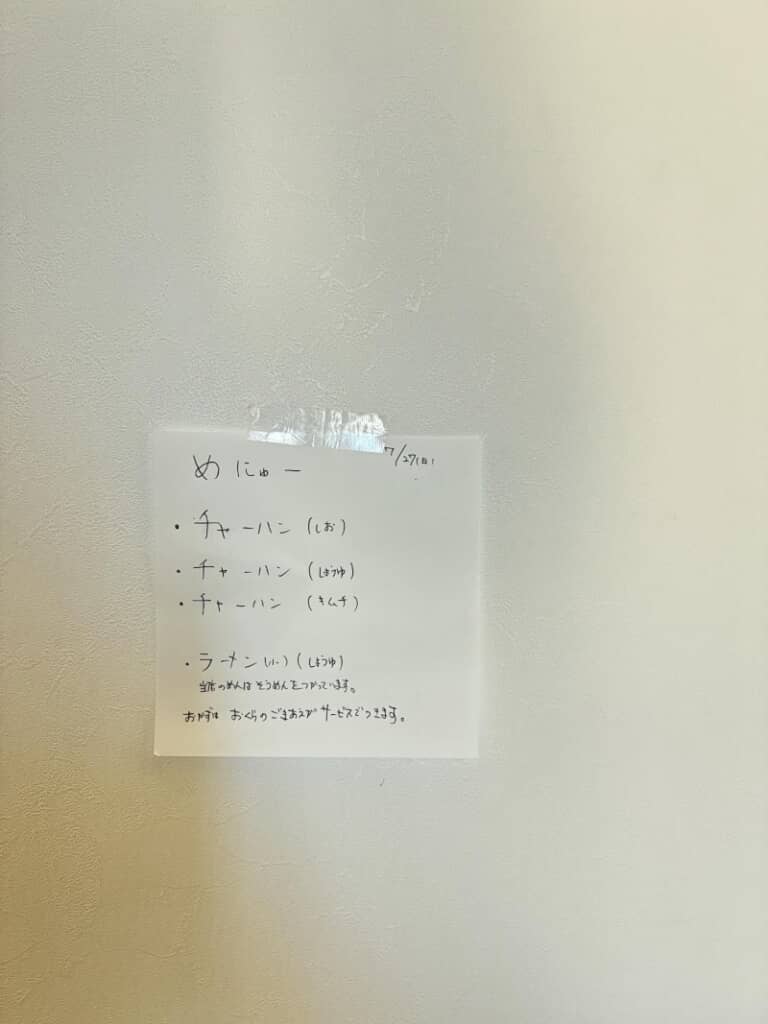 めにゅー 7/27(日)
・チャーハン (しお)
・チャーハン (しょうゆ)
・チャーハン (キムチ)
・ラーメン (小) (しょうゆ)
当店のめんはそうめんをつかっています。
おかずは おくらのごまあえがサービスでつきます。